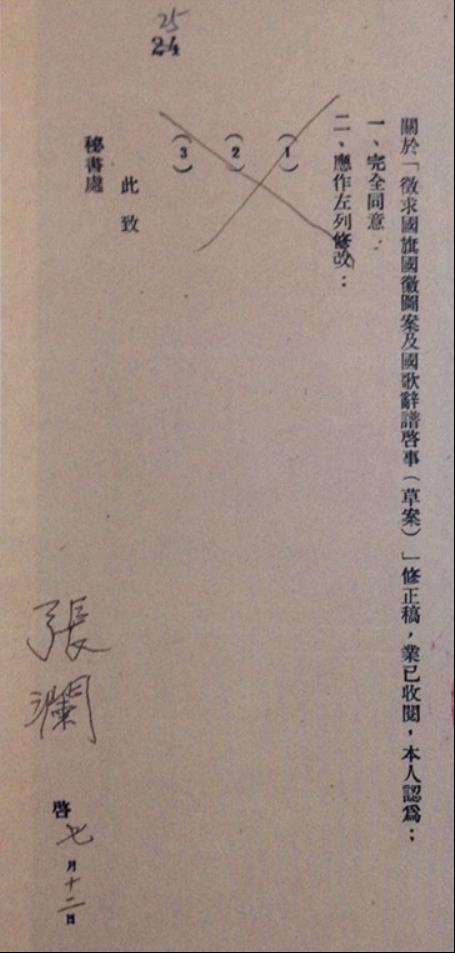 25
24
關於「徵求國旗國徽圖案及國歌辭譜啓事(草案)」修正稿,業已收閱,本人認爲:
一、完全同意.
二、應作左列修改:
(1)
(2)
(3)
此致
秘書處
張瀾
啓七月十二日